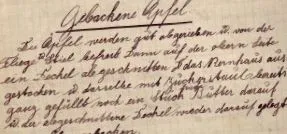 Gebackene Äpfel
Die Äpfel werden gut abgerieben u. von der
Fliege u. Stiel befreit. Dann auf der obern Seite
ein Deckel abgeschnitten, das Kernhaus aus-
gestochen u. derselbe mit
ganz gefüllt noch ein Stück Butter darauf
u. der abgeschnittene Deckel wieder darauf gelegt